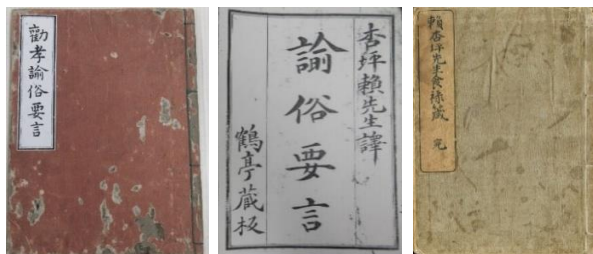 勸孝諭俗要言
杏坪賴先生譯
諭俗要言
鶴亭藏板
賴杏坪先生食祿箴 完